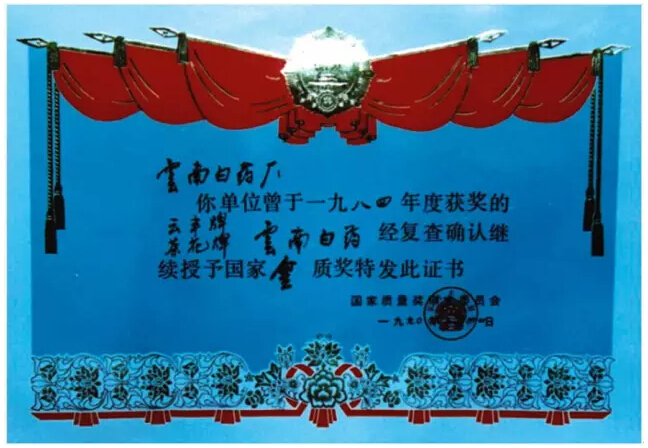 雲南白药厂
你单位曾于一九八四年度获奖的
云丰牌
茶花牌
雲南白药经复查确认继
续授予国家金质奖特发此证书
国家质量奖审定委员会
一九九〇年